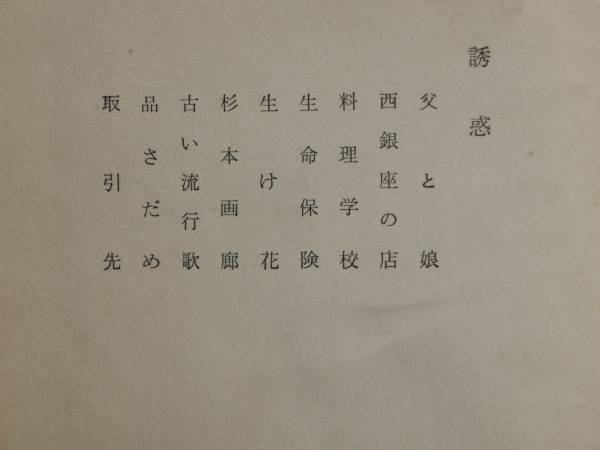 誘惑
父と娘
西銀座の店
料理学校
生命保険
生け花
杉本画廊
古い流行歌
品さだめ
取引先